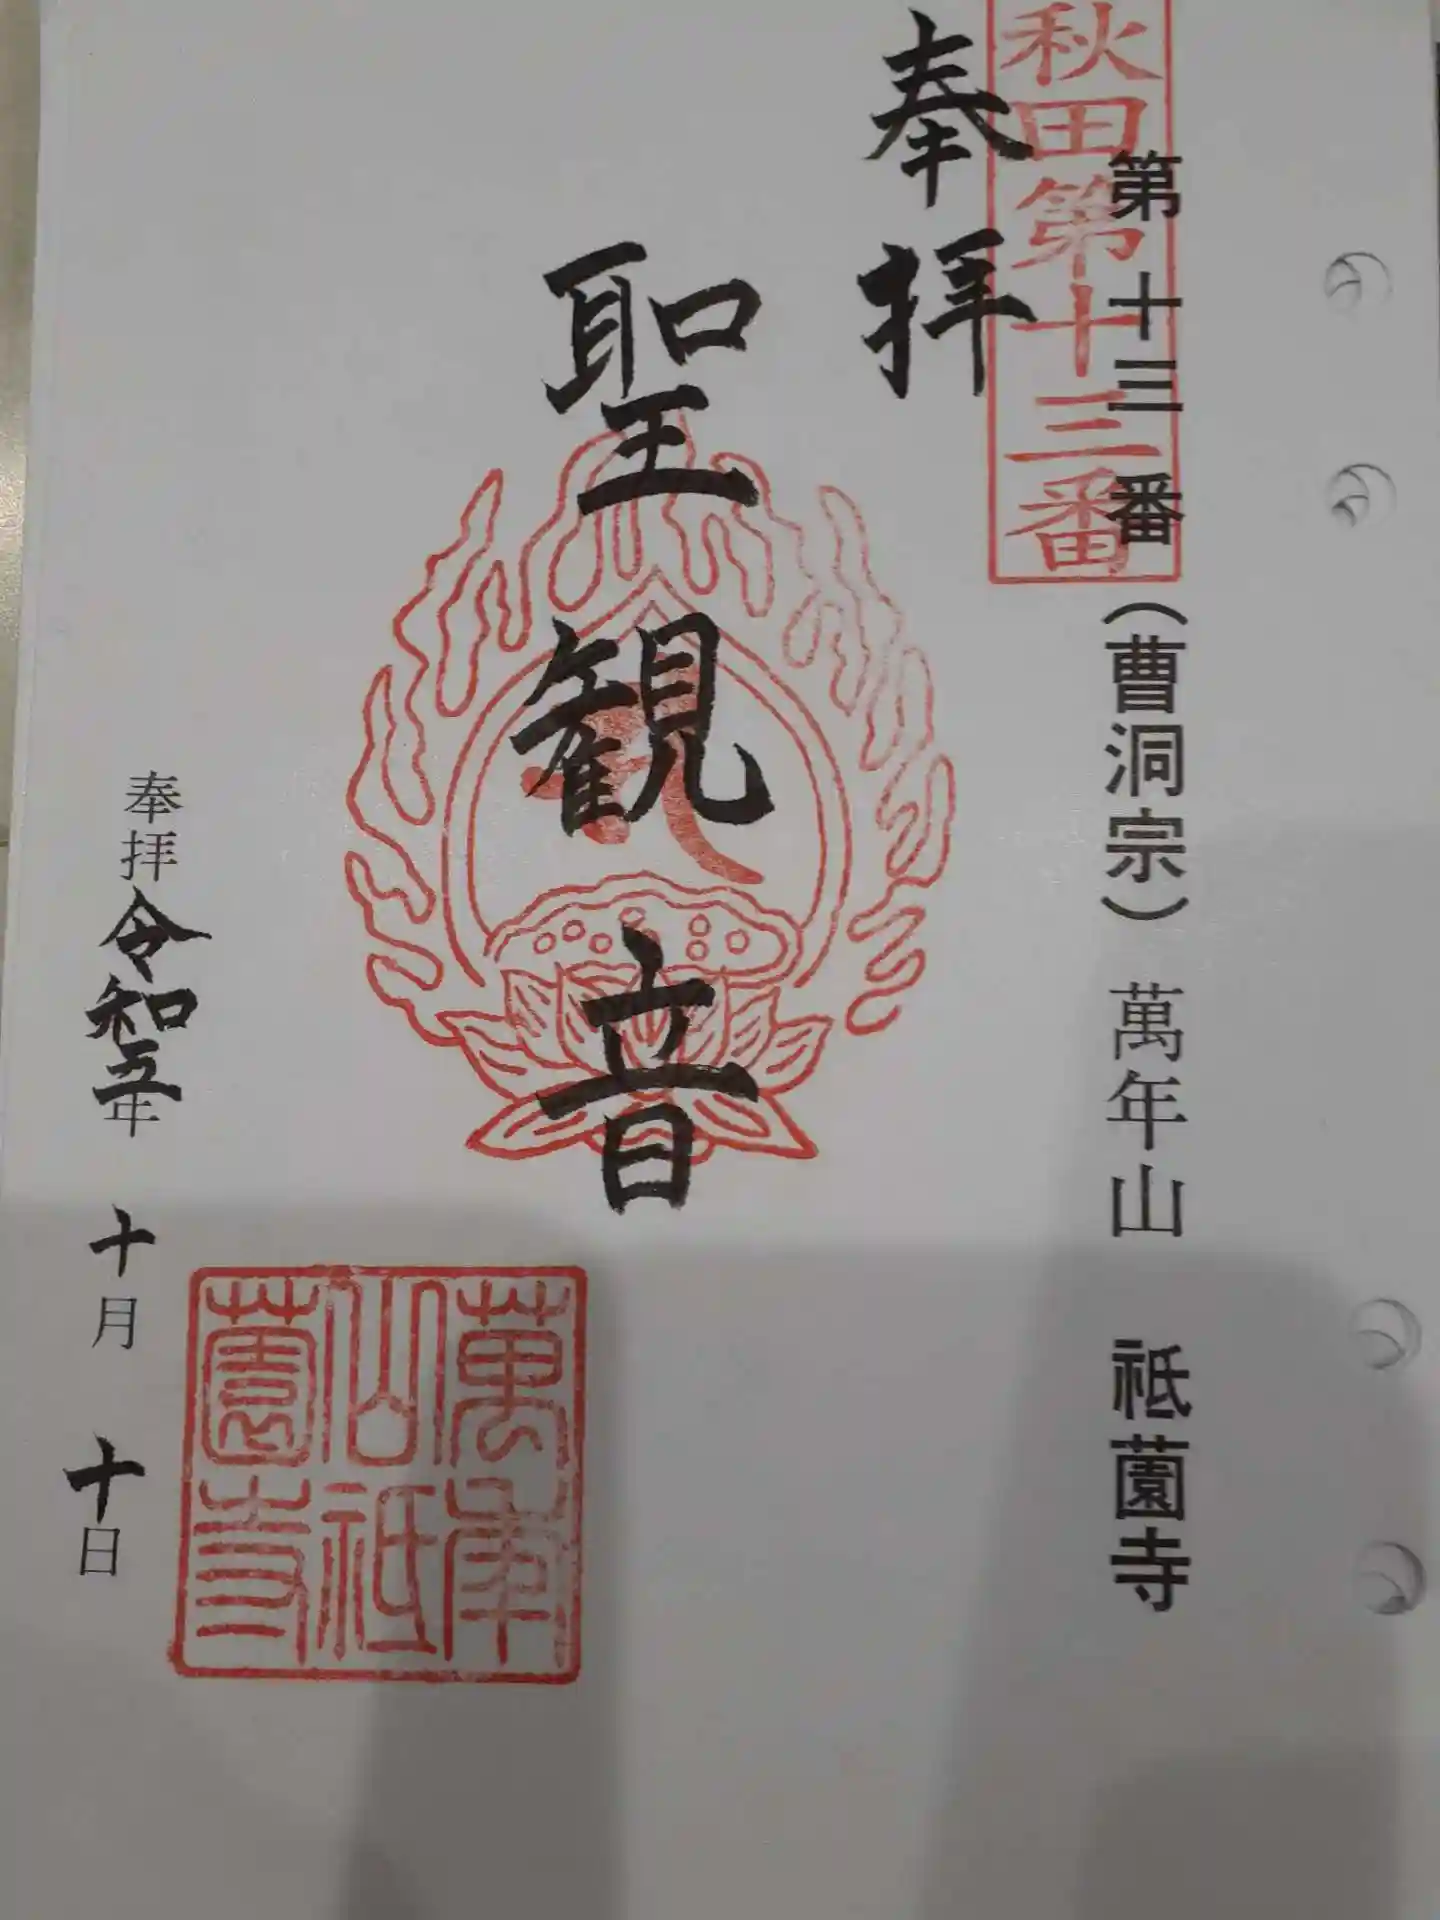 第十三番（曹洞宗）萬年山 祗薗寺
秋田第十三番
奉拝
聖観音
萬年
山祗
薗寺
奉拝令和五年十月十日